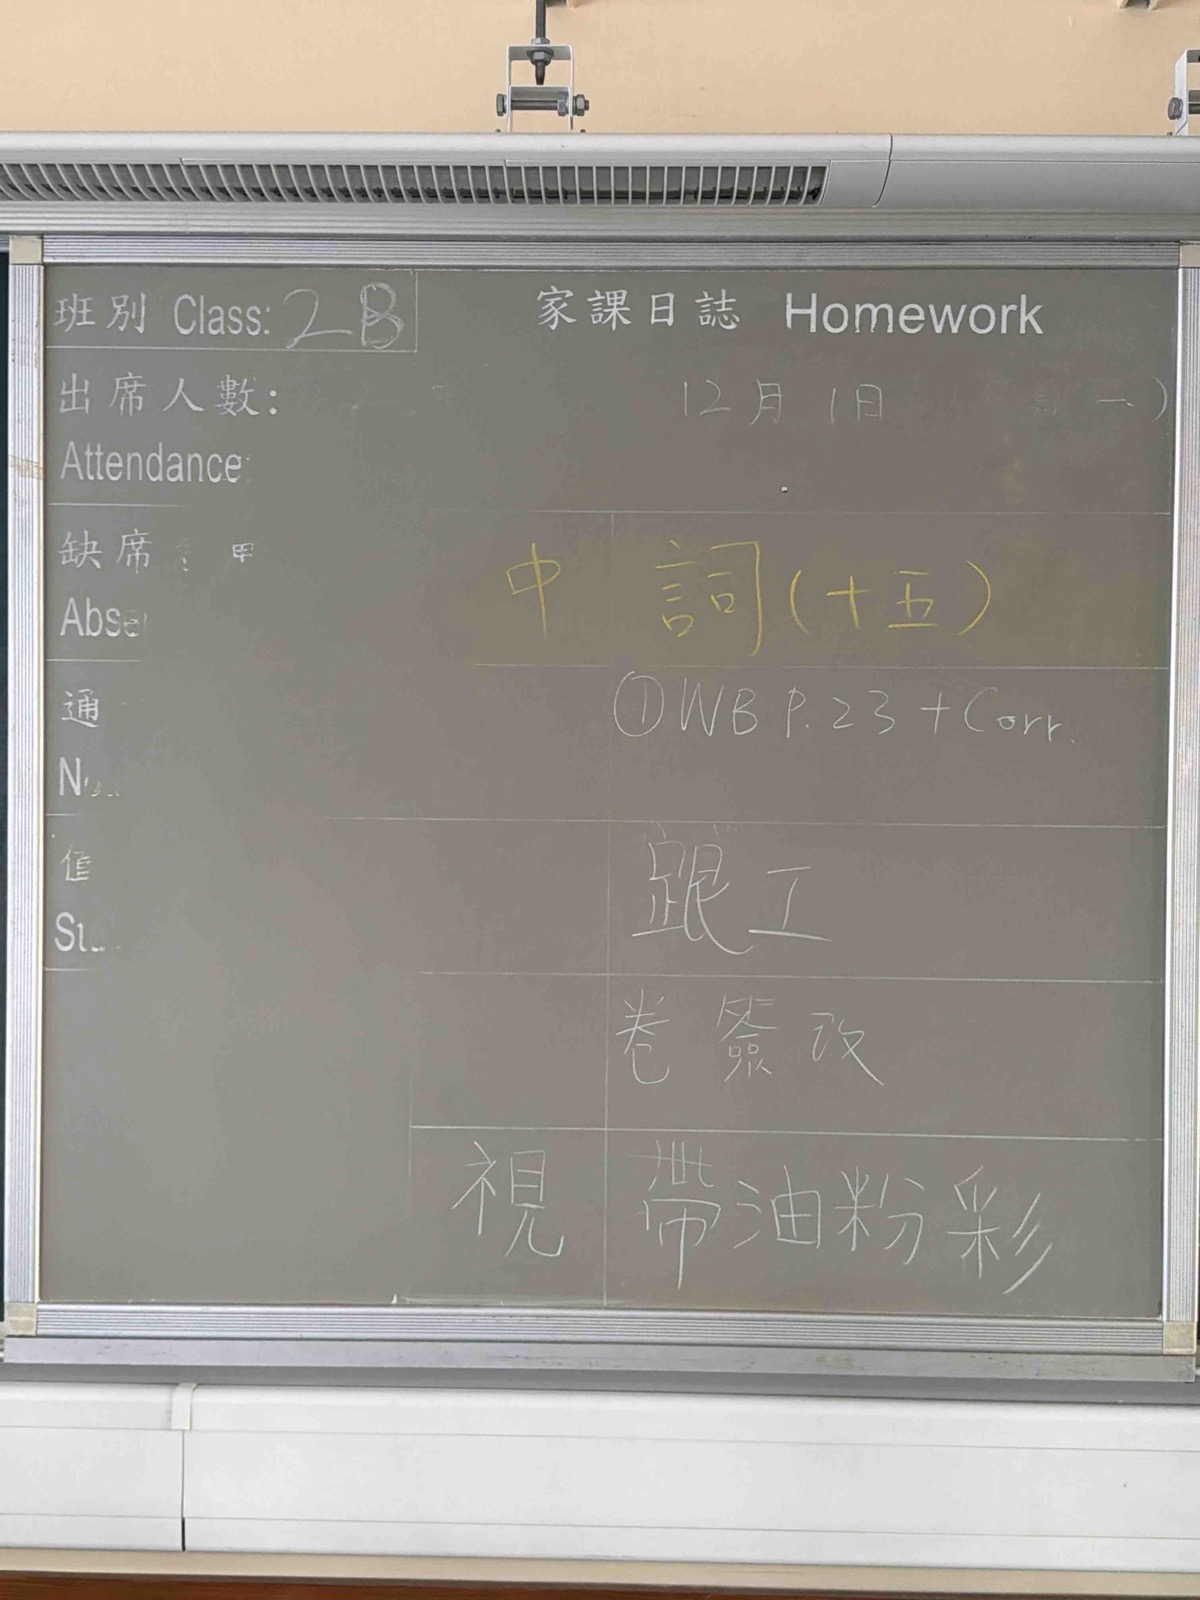 班別 Class: 2B
家課日誌 Homework
出席人數:
12月1日
一)
Attendance:
中 詞(十五)
缺席
①WB P.23 + Corr.
通
跟工
卷簽改
視 帶油粉彩